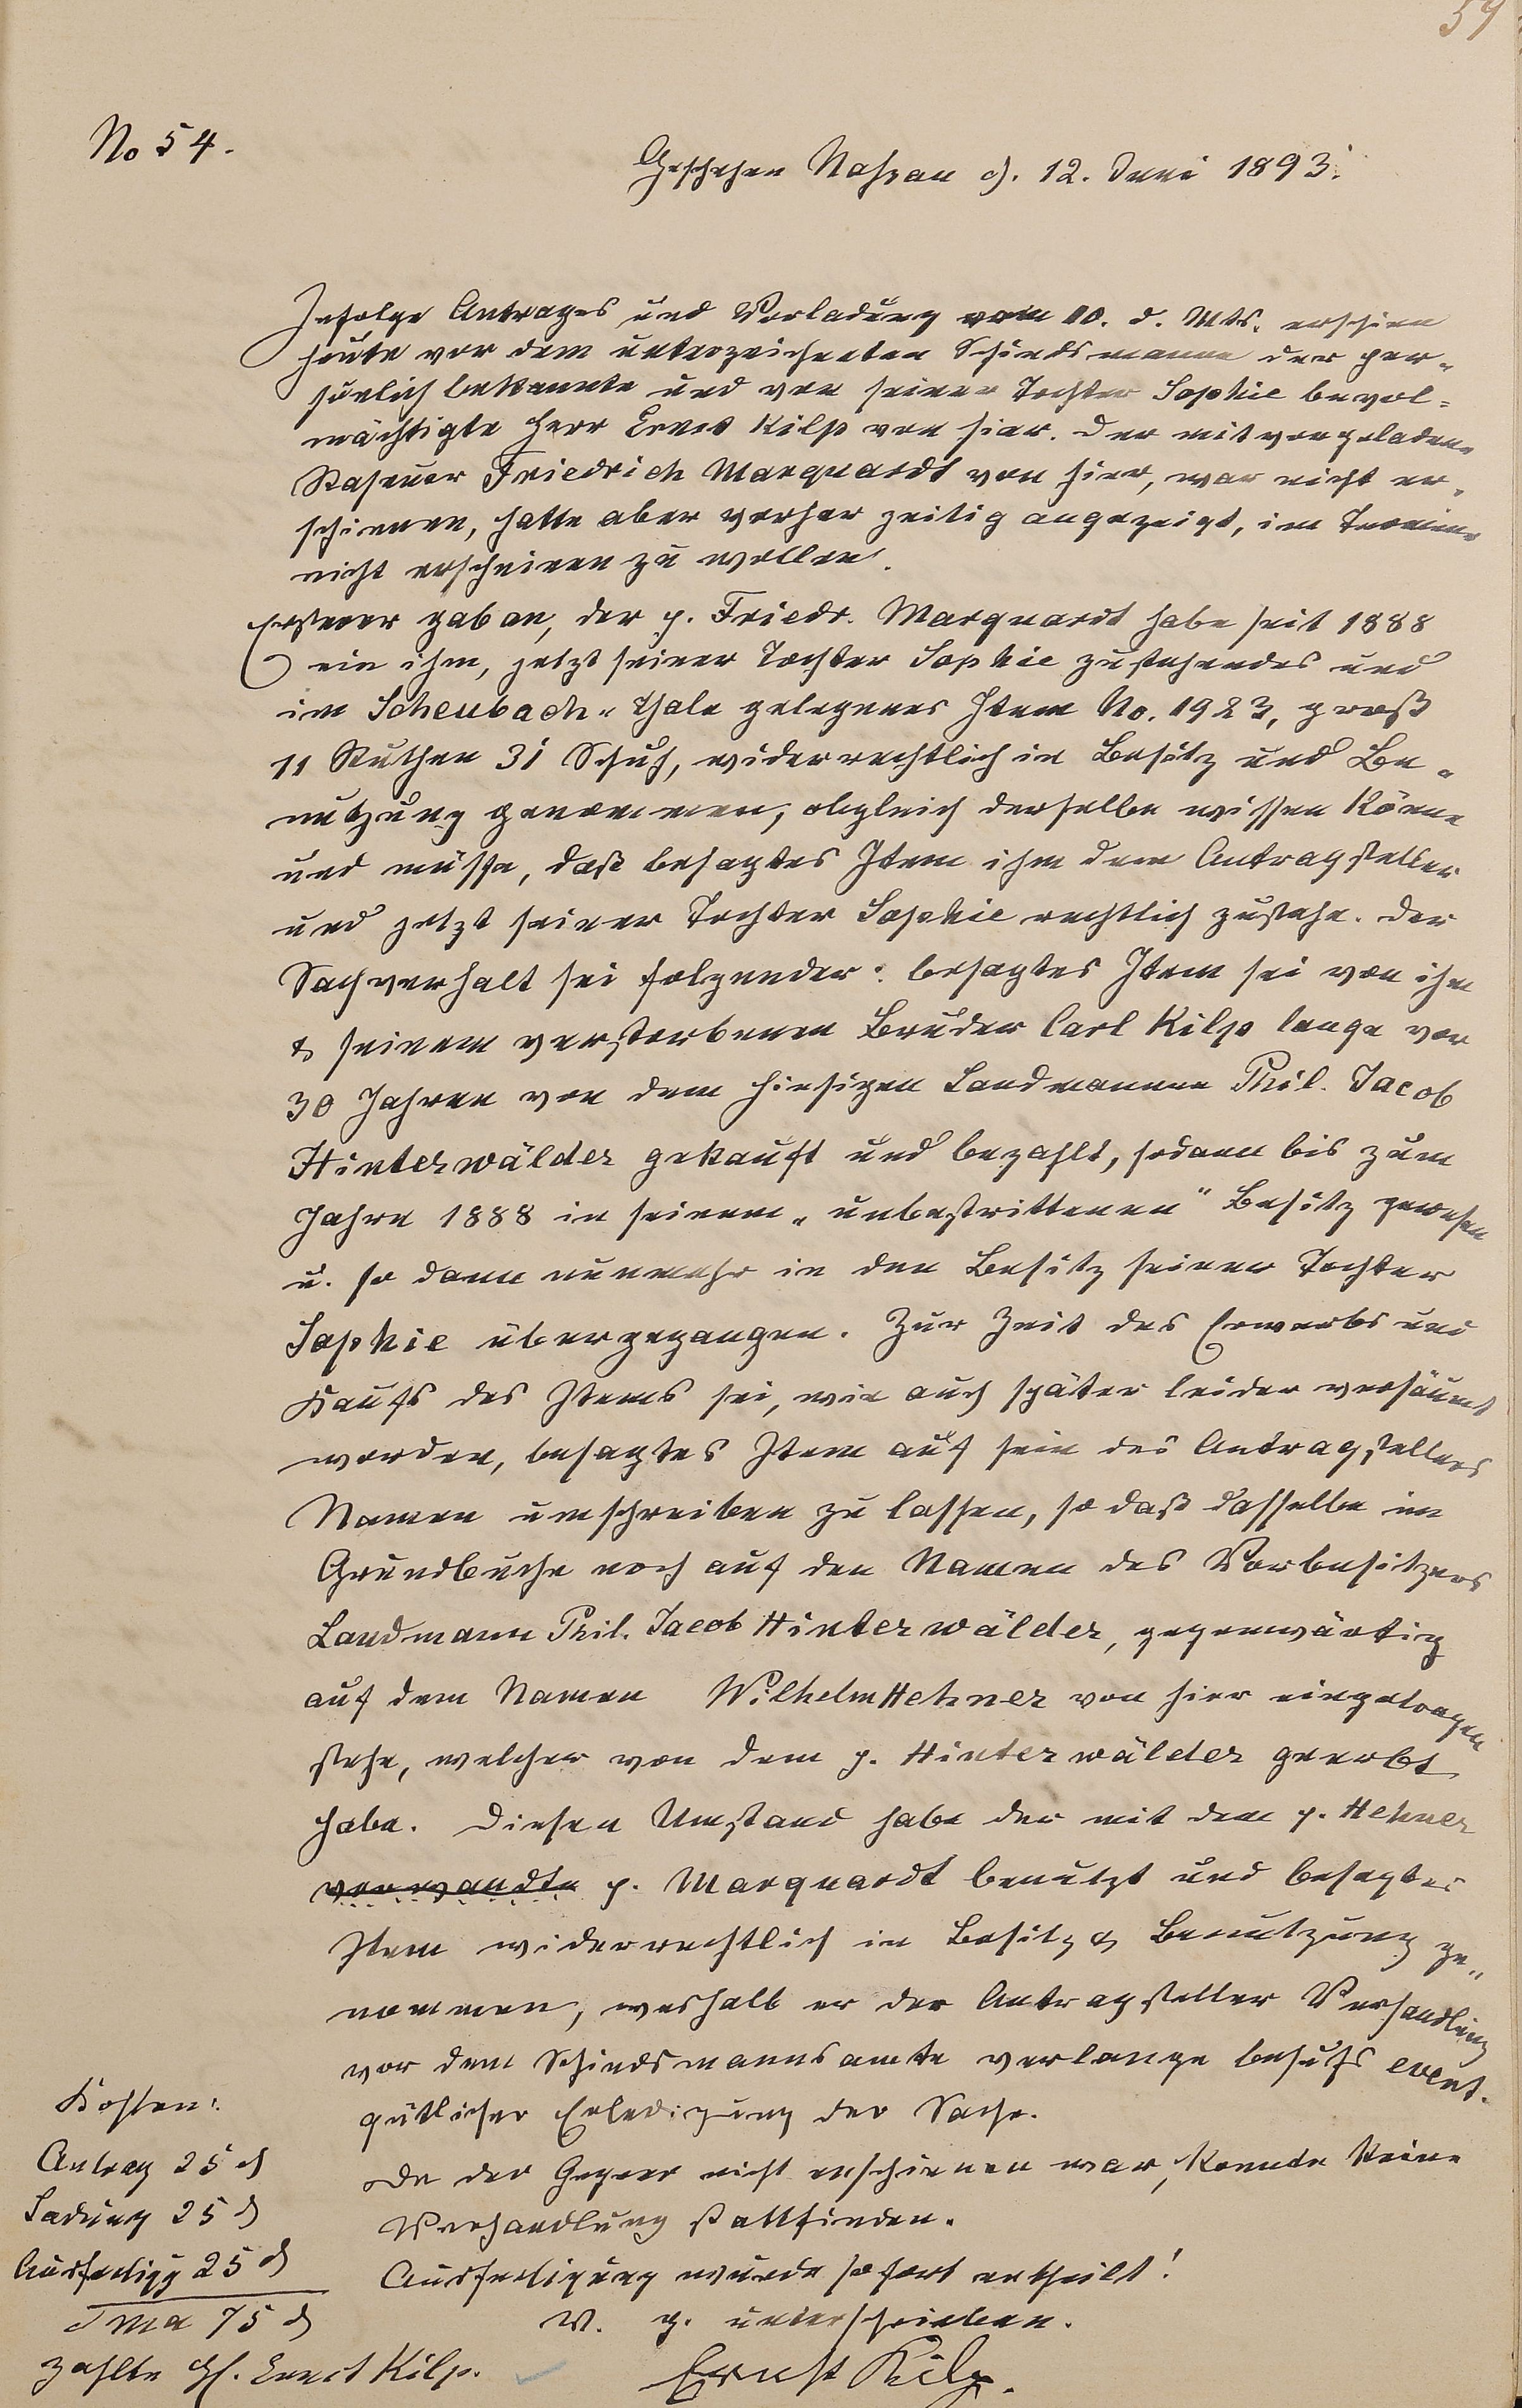 59
No 54.
Geschehen Nassau d. 12. Juni 1893.
Infolge Antrages und Vorladung vom 10. d. Mts. erschien
heute vor dem unterzeichneten Schiedsmanne der per-
sönlich bekannte und von seiner Tochter Sophie bevol-
mächtigte Herr Ernst Kilp von hier. Der mitvorgeladene
Friedrich Marquardt von hier, war nicht er-
schienen, hatte aber vorher zeitig angezeigt, im Termine
nicht erscheinen zu wollen.
Ersterer gab an, der p. Friedr. Marquardt habe seit 1888
ein ihm, jetzt seiner Tochter Sophie zustehendes und
im Scheubach-Thale gelegenes Item No. 1923, groß
11 Ruthen 31 Schuh, widerrechtlich in Besitz und Be-
nutzung genommen, obgleich derselbe wissen könne
und müsse, daß besagtes Item ihm dem Antragsteller
und jetzt seiner Tochter Sophie rechtlich zustehe. Der
Sachverhalt sei folgender: besagtes Item sei von ihm
& seinem verstorbenen Bruder Carl Kilp lange vor
30 Jahren von dem hiesigen Landmanne Phil. Jacob
Hinterwälder gekauft und bezahlt, sodann bis zum
Jahre 1888 in seinem „unbestrittenen" Besitz gewesen
u. so dann nunmehr in den Besitz seiner Tochter
Sophie übergegangen. Zur Zeit des Erwerbs und
Kaufs des Items sei, wie auch später leider versäumt
worden, besagtes Item auf sein des Antragstellers
Namen umschreiben zu lassen, so daß dasselbe im
Grundbuche noch auf den Namen des Vorbesitzers
Landmann Phil. Jacob Hinterwälder, gegenwärtig
auf dem Namen Wilhelm Hehner von hier eingetragen
stehe, welcher von dem p. Hinterwälder geerbt
habe. Diesen Umstand habe der mit dem p. Hehner
verwandte p. Marquardt benutzt und besagtes
Item widerrechtlich in Besitz & Benutzung ge-
nommen, weshalb er der Antragsteller Verhandlung
vor dem Schiedsmannsamte verlange behufs event.
gütlicher Erledigung der Sache.
Da der Gegner nicht erschienen war, konnte keine
Verhandlung stattfinden.
Ausfertigung wurde sofort ertheilt!
v. g. unterschrieben.
Ernst Kilp.
Kosten:
Antrag 25 ₰
Ladung 25 ₰
Ausfertigg 25 ₰
Sma 75 ₰
zahlte H. Ernst Kilp.